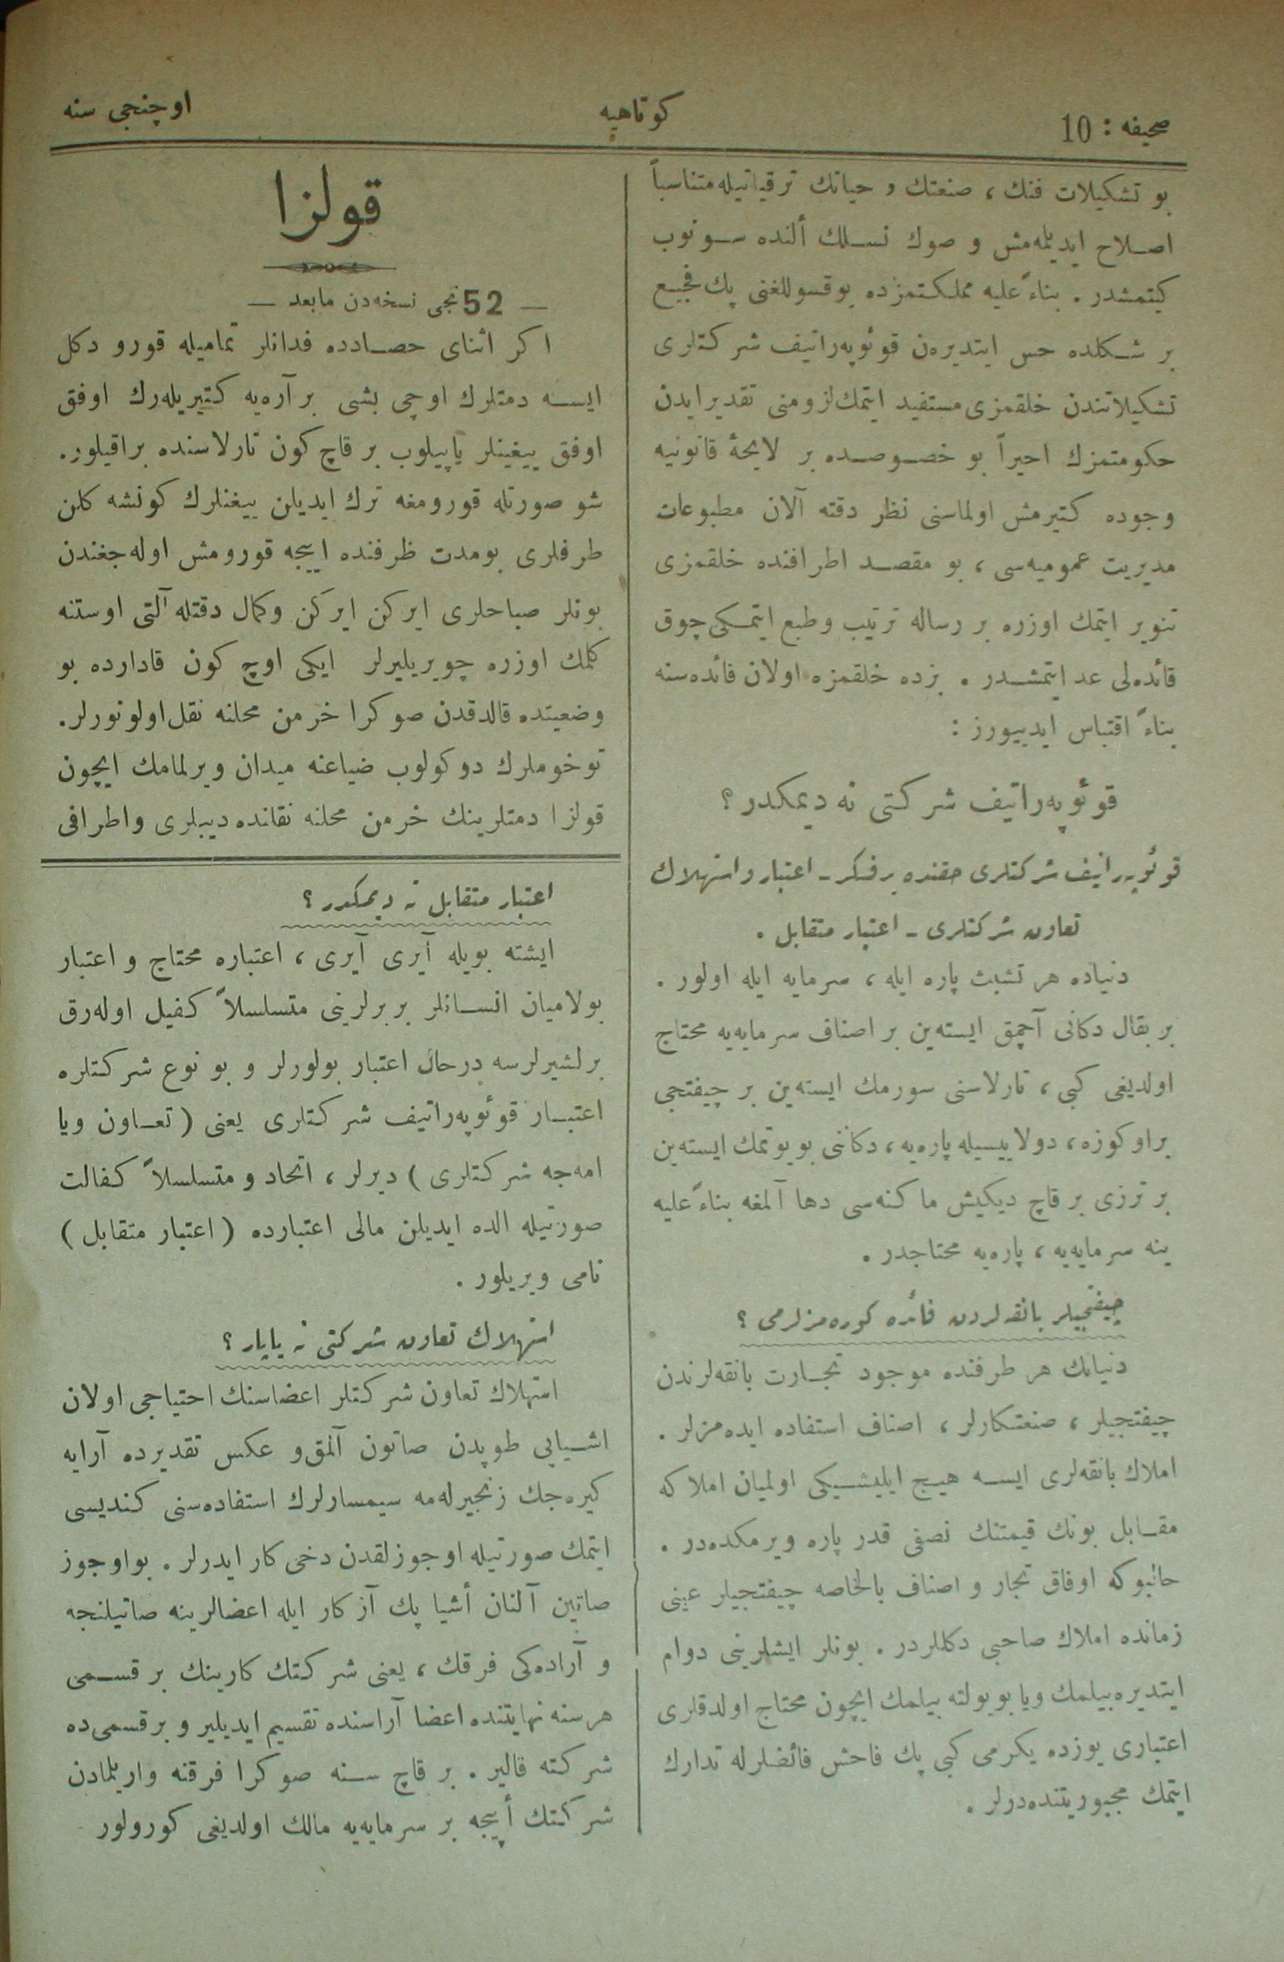 صحيفه : 10
كوتاهيه
اوچنجی سنه
بو تشكيلات فنك ، صنعتك و حياتك ترقياتيله متناسباً
اصلاح ايديله‌مش و صوك نسلك ألنده سونوب
كيتمشدر . بناءً عليه مملكتمزده يوقسوللغنی پك فجيع
بر شكلده حس ايتديره‌ن قوئوپه‌راتيف شركتلری
تشكيلاتندن خلقمزی مستفيد ايتمك لزومنی تقدير ايدن
حكومتمزك اخيراً بو خصوصده بر لايحهٔ قانونيه
وجوده كتيرمش اولماسنی نظر دقته آلان مطبوعات
مديريت عموميه‌سی ، بو مقصد اطرافنده خلقمزی
تنوير ايتمك اوزره بر رساله ترتيب و طبع ايتمكی چوق
فائده‌لی عد ايتمشدر . بزده خلقمزه اولان فائده‌سنه
بناءً اقتباس ايدييورز :
قوئوپه‌راتيف شركتی نه ديمكدر ؟
قوئوپه‌راتيف شركتلری حقنده بر فكر ـ اعتبار و استهلاك
تعاون شركتلری ـ اعتبار متقابل .
دنياده هر تشبث پاره ايله ، سرمايه ايله اولور .
بر بقال دكانی آچمق ايسته‌ين بر اصناف سرمايه‌يه محتاج
اولديغی كبی ، تارلاسنی سورمك ايسته‌ين بر چيفتجی
بر اوكوزه ، دولاييسيله پاره‌يه ، دكاننی بويوتمك ايسته‌ين
بر ترزی بر قاچ ديكيش ماكنه‌سی دها آلمغه بناءً عليه
ينه سرمايه‌يه ، پاره‌يه محتاجدر .
چيفتجيلر بانقه‌لردن فائده كوره‌مزلرمی ؟
دنيانك هر طرفنده موجود تجارت بانقه‌لرندن
چيفتجيلر ، صنعتكارلر ، اصناف استفاده ايده‌مزلر .
املاك بانقه‌لری ايسه هيچ ايليشيكی اولميان املاكه
مقابل بونك قيمتنك نصفی قدر پاره ويرمكده‌در .
حالبوكه اوفاق تجار و اصناف بالخاصه چيفتجيلر عينی
زمانده املاك صاحبی دكللردر . بونلر ايشلرينی دوام
ايتديره‌بيلمك ويا بويولته بيلمك ايچون محتاج اولدقلری
اعتباری يوزده يكرمی كبی پك فاحش فائضلرله تدارك
ايتمك مجبوريتنده‌درلر .
قولزا
— 52 نجی نسخه‌دن مابعد —
اكر اثنای حصادده فدانلر تماميله قورو دكل
ايسه دمتلرك اوچی بشی بر آره‌يه كتيريله‌رك اوفق
اوفق ييغينلر ياپيلوب بر قاچ كون تارلاسنده براقيلور.
شو صورتله قورومغه ترك ايديلن ييغنلرك كونشه كلن
طرفلری بومدت ظرفنده ايیجه قورومش اوله‌جغندن
بونلر صباحلری ايركن ايركن وكمال دقتله آلتی اوستنه
كلمك اوزره چويريليرلر ايكی اوچ كون قادارده بو
وضعيتده قالدقدن صوكرا خرمن محلنه نقل اولونورلر.
توخوملرك دوكولوب ضياعنه ميدان ويرلمامك ايچون
قولزا دمتلرينك خرمن محلنه نقلنده ديبلری واطرافی
اعتبار متقابل نه ديمكدر ؟
ايشته بويله آيری آيری ، اعتباره محتاج و اعتبار
بولاميان انسانلر بربرلرينی متسلسلاً كفيل اوله‌رق
برلشيرلرسه درحال اعتبار بولورلر و بو نوع شركتلره
اعتبار قوئوپه‌راتيف شركتلری يعنی ( تعاون ويا
امه‌جه شركتلری ) ديرلر ، اتحاد و متسلسلاً كفالت
صورتيله الده ايديلن مالی اعتبارده ( اعتبار متقابل )
نامی ويريلور .
استهلاك تعاون شركتی نه ياپار ؟
استهلاك تعاون شركتلر اعضاسنك احتياجی اولان
اشيايی طوپدن صاتون آلمق و عكس تقديرده آرايه
كيره‌جك زنجيرله‌مه سيمسارلرك استفاده‌سنی كنديسی
ايتمك صورتيله اوجوزلقدن دخی كار ايدرلر . بواوجوز
صاتين آلنان أشيا پك آز كار ايله اعضالرينه صاتيلنجه
و آراده‌كی فرقك ، يعنی شركتك كارينك بر قسمی
هرسنه نهايتنده اعضا آراسنده تقسيم ايديلير و بر قسمی ده
شركته قالير . بر قاچ سنه صوكرا فرقنه واريلمادن
شركتك أييجه بر سرمايه‌يه مالك اولديغی كورولور